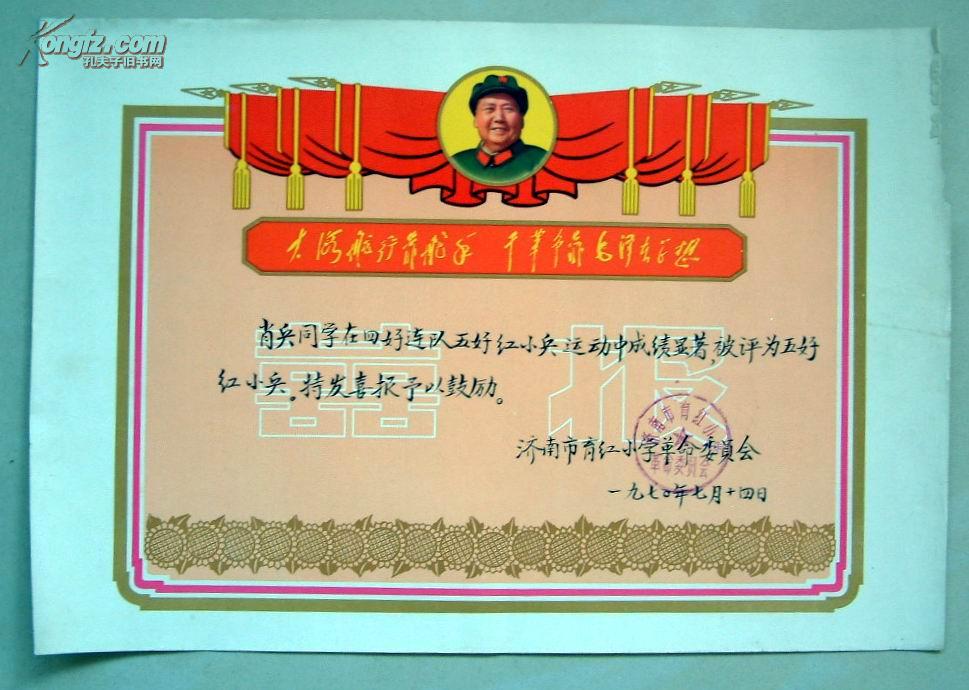 Kongfz.com
孔夫子旧书网
大海航行靠舵手 干革命靠毛泽东思想
喜报
肖兵同学在四好连队五好红小兵运动中成绩显著，被评为五好
红小兵。特发喜报予以鼓励。
济南市育红小学革命委员会
济南市育红小学
革命委员会
一九七〇年七月十四日